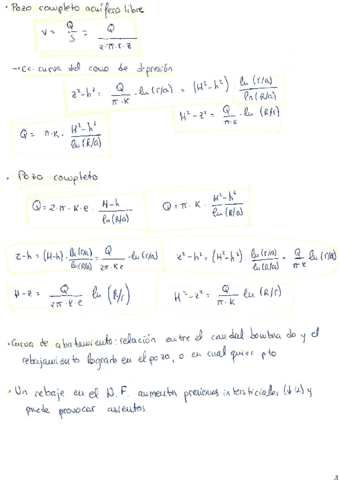 • Pozo completo acuífero libre
v = Q/S = Q/(2·π·r·z)
→ Ec. curva del cono de depresión
z²-h² = Q/(π·K) · ln(r/a) = (H²-h²) · ln(r/a)/ln(R/a)
H²-z² = Q/(π·K) · ln(R/r)
Q = π·K · (H²-h²)/ln(R/a)
• Pozo completo
Q = 2·π·K·e · (H-h)/ln(R/a)    Q = π·K · (H²-h²)/ln(R/a)
z-h = (H-h) · ln(r/a)/ln(R/a) = Q/(2π·K·e) · ln(r/a)    z²-h² = (H²-h²) ln(r/a)/ln(R/a) = Q/(π·K) ln(r/a)
H-z = Q/(2π·K·e) ln(R/r)    H²-z² = Q/(π·K) ln(R/r)
• Curva de abatimiento: relación entre el caudal bombeado y el
rebajamiento logrado en el pozo, o en cualquier pto
• Un rebaje en el N.F. aumenta presiones intersticiales (↓u) y
puede provocar asientos